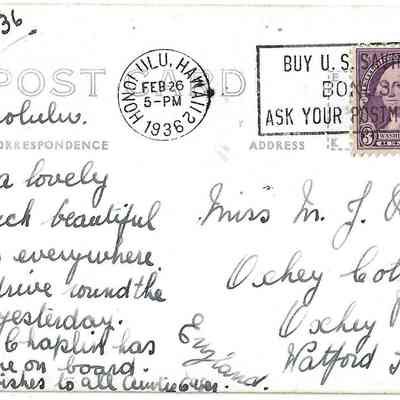 36
POST CARD
HONOLULU, HAWAII
FEB 26
5-PM
1936
BUY U.S. SAV
BON
ASK YOUR POSTM
3
WASHIN
olulu.
ORRESPONDENCE
ADDRESS
a lovely
ch beautiful
s everywhere
drive round the
yesterday.
Chaplin has
e on board.
wishes to all Auntie
Miss M. J.
Oxhey Cot
Oxhey
Watford
England.